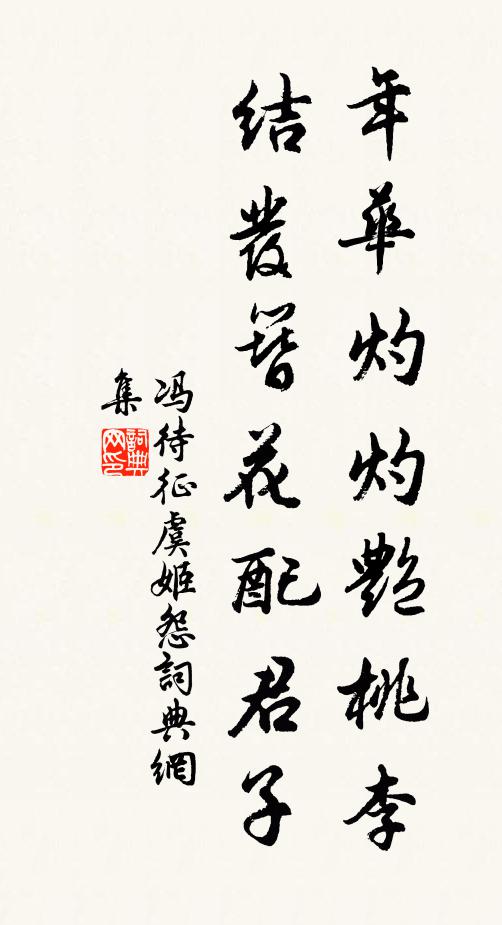 年華灼灼艷桃李
結發簪花配君子
冯待征虞姬怨詞典網
集
詞典網印